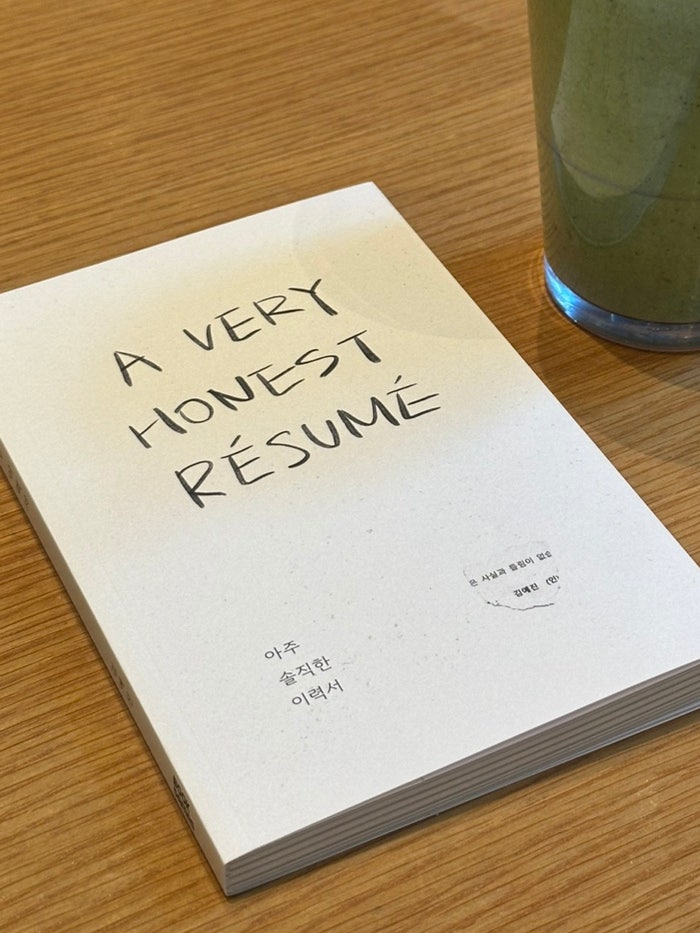 A VERY
HONEST
RÉSUMÉ
은 사실과 틀림이 없습
김예진 (인)
아주
솔직한
이력서